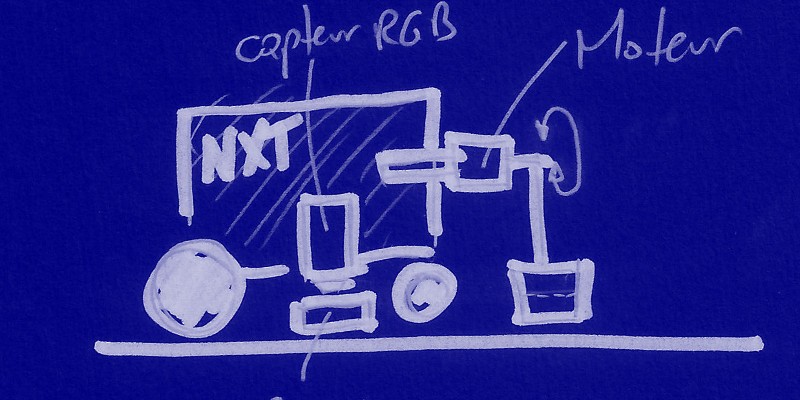 capteur RGB
Moteur
NXT